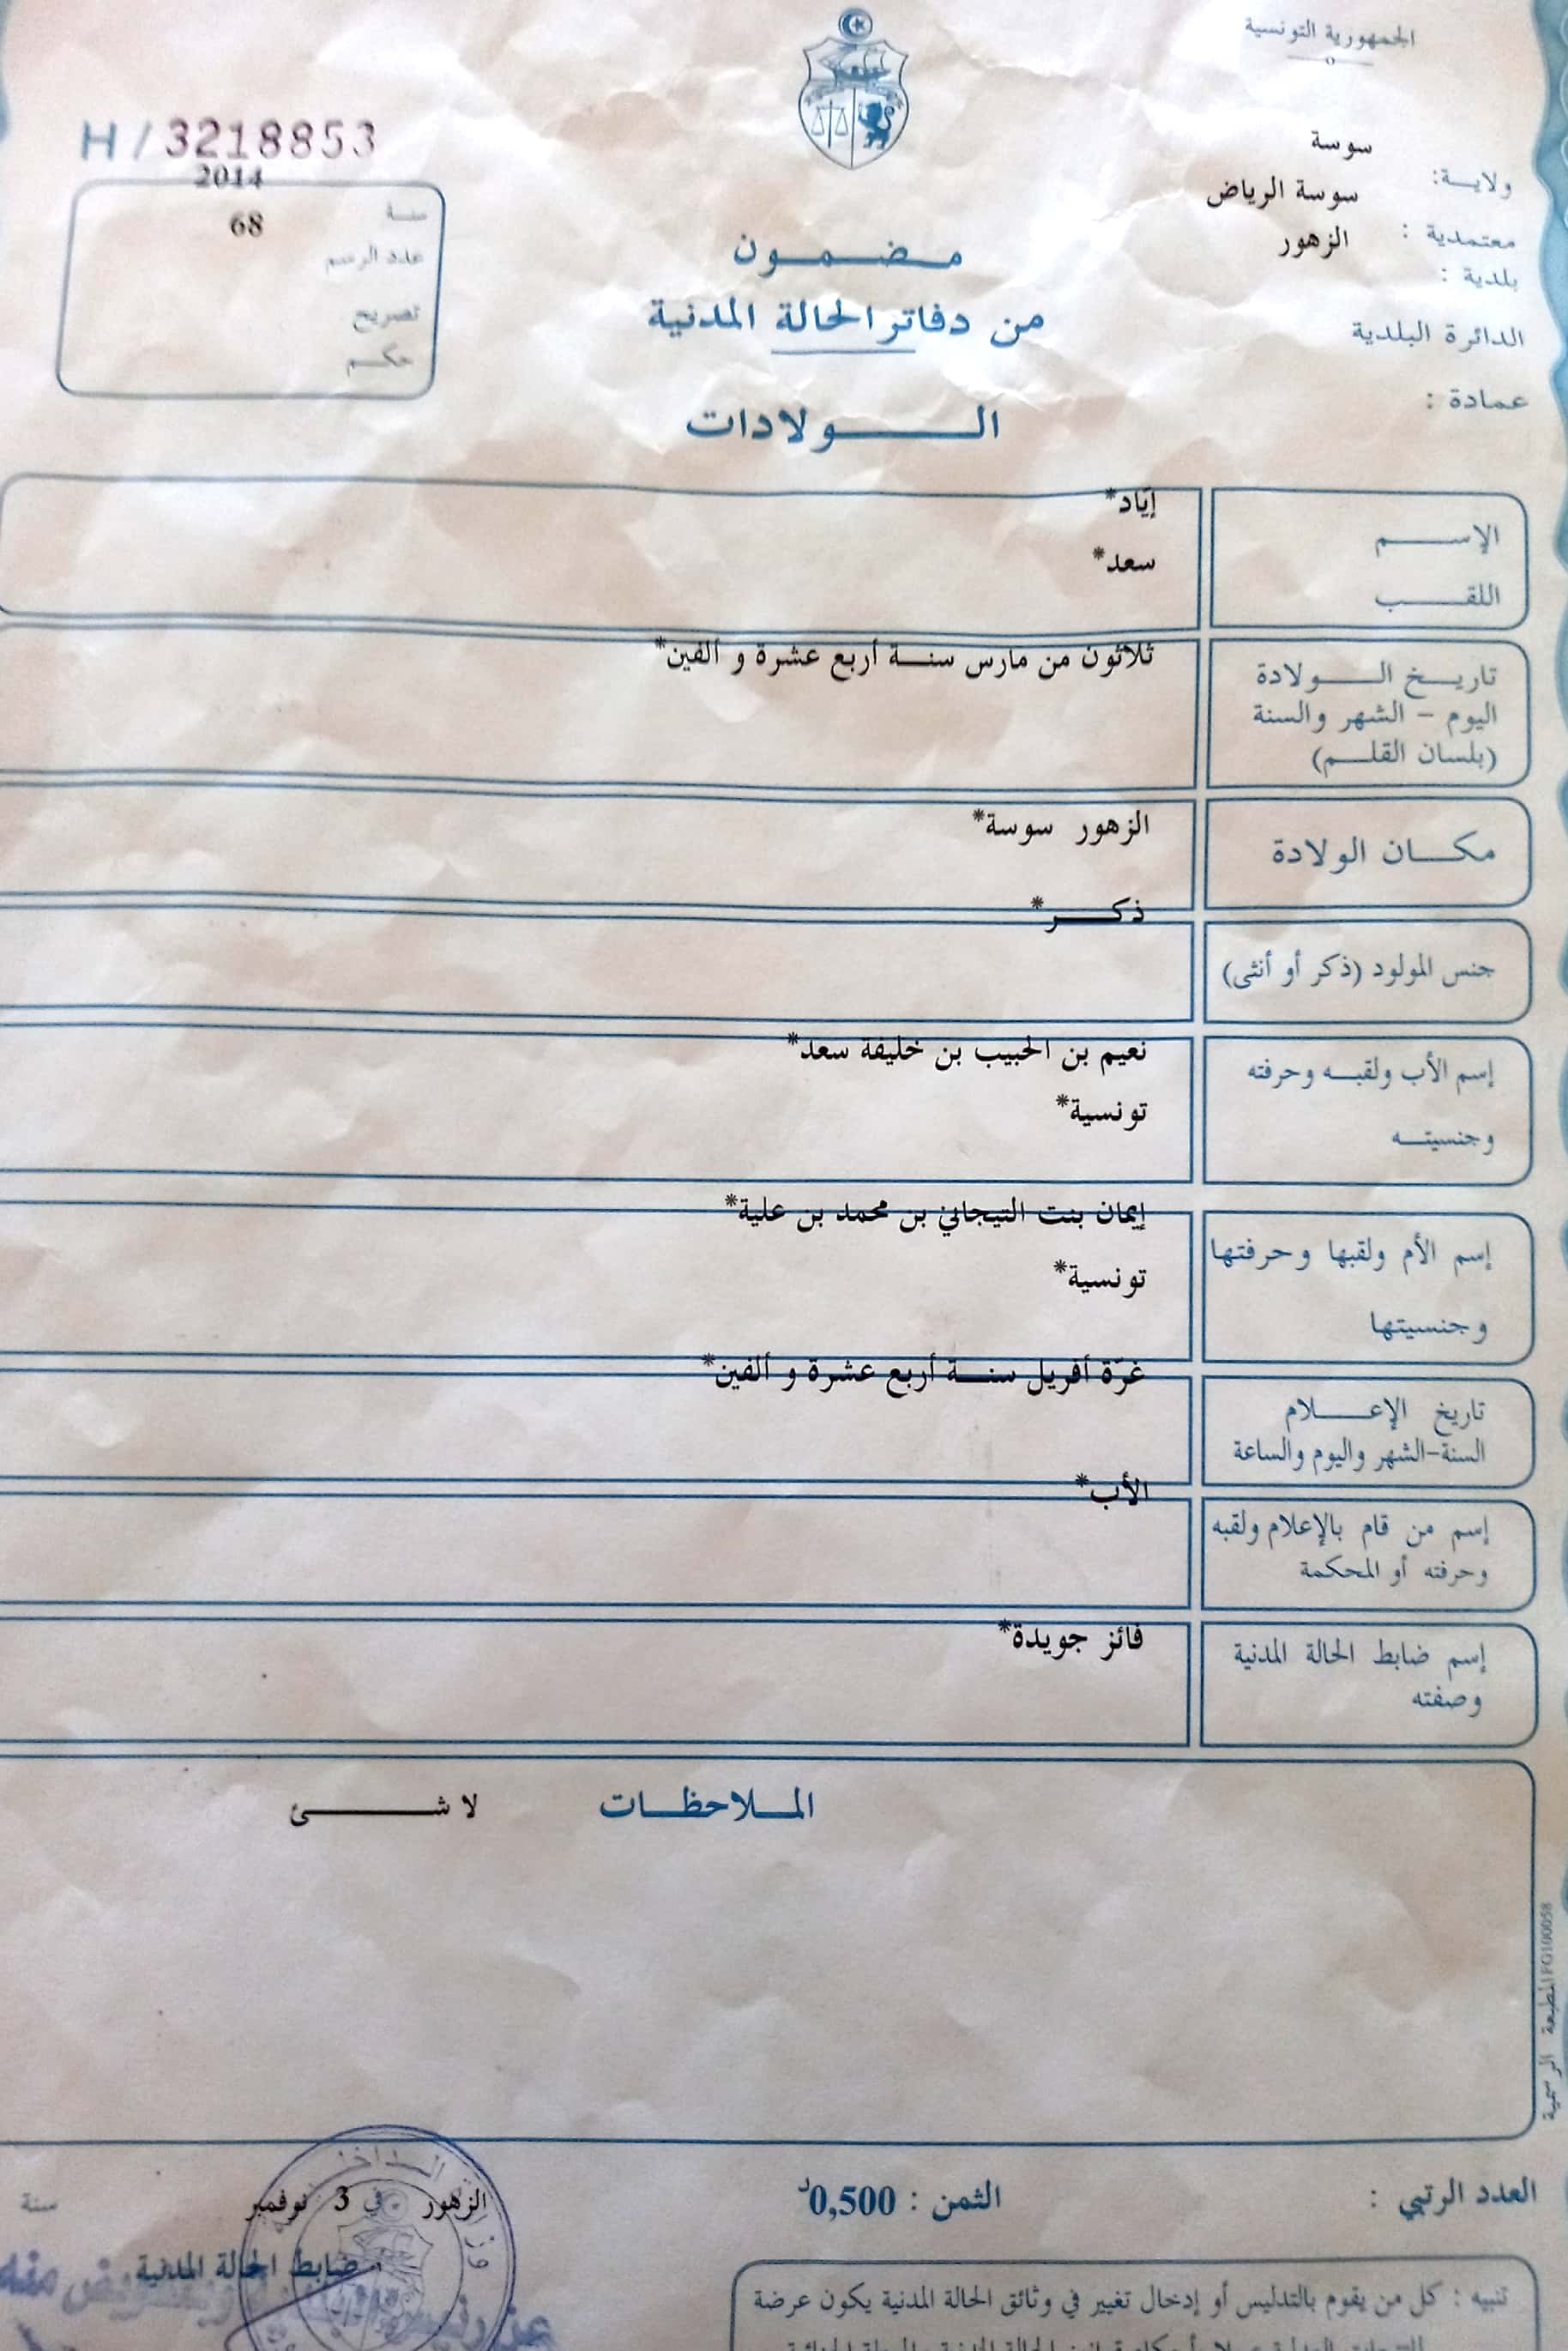 الجمهورية التونسية
ولايـة: سوسة
معتمدية : سوسة الرياض
بلدية : الزهور
الدائرة البلدية
عمادة :
H / 3218853
سنة 2014
عدد الرسم 68
تصريح
حكـم
مـضـمـون
من دفاتر الحالة المدنية
الـولادات
الإسـم إيّاد*
اللقـب سعد*
تاريـخ الـولادة ثلاثون من مارس سنـة أربع عشرة و ألفين*
اليوم - الشهر والسنة
(بلسان القلـم)
مكـان الولادة الزهور سوسة*
جنس المولود (ذكر أو أنثى) ذكـر*
إسم الأب ولقبـه وحرفته نعيم بن الحبيب بن خليفة سعد*
وجنسيتـه تونسية*
إسم الأم ولقبها وحرفتها إيمان بنت التيجاني بن محمد بن علية*
وجنسيتها تونسية*
تاريخ الإعـلام غرّة أفريل سنـة أربع عشرة و ألفين*
السنة-الشهر واليوم والساعة
إسم من قام بالإعلام ولقبه الأب*
وحرفته أو المحكمة
إسم ضابط الحالة المدنية فائز جويدة*
وصفته
المـلاحظـات لا شـئ
المطبعة الرسمية FG100058
العدد الرتبي :
الثمن : 0,500د
الزهور في 3 نوفمبر سنة
ضابط الحالة المدنية
تنبيه : كل من يقوم بالتدليس أو إدخال تغيير في وثائق الحالة المدنية يكون عرضة